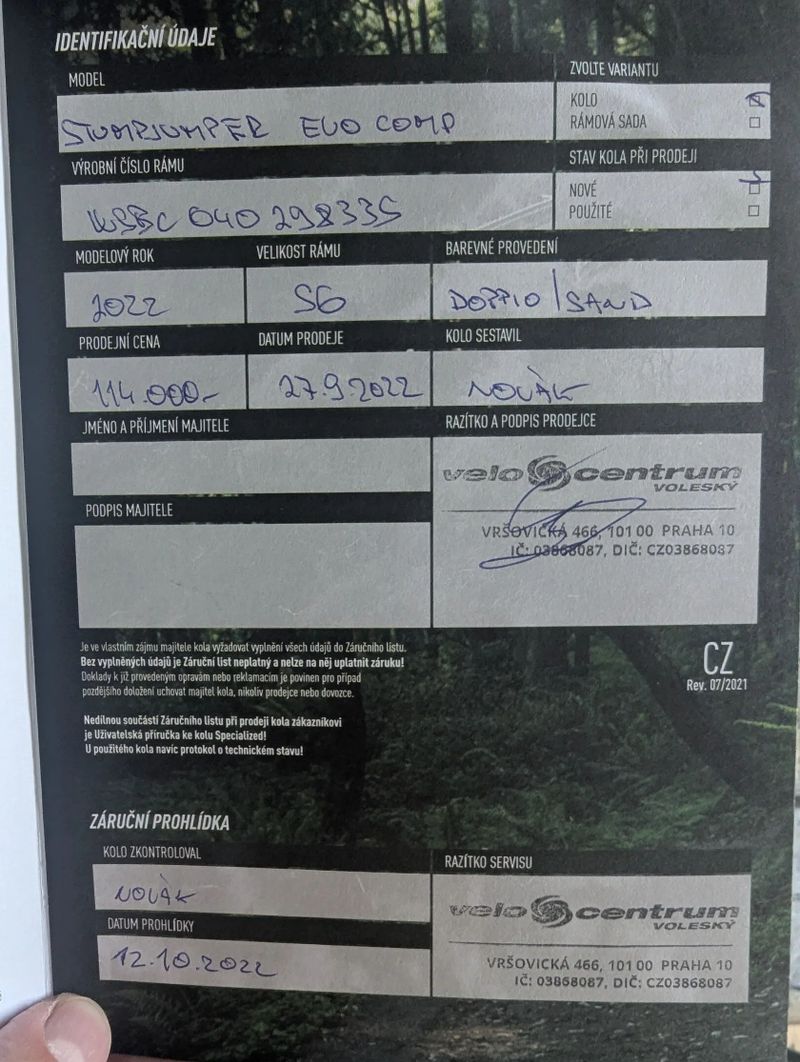 IDENTIFIKAČNÍ ÚDAJE
MODEL
STUMPJUMPER EVO COMP
ZVOLTE VARIANTU
KOLO
RÁMOVÁ SADA
VÝROBNÍ ČÍSLO RÁMU
WSBC 040 298335
STAV KOLA PŘI PRODEJI
NOVÉ
POUŽITÉ
MODELOVÝ ROK
2022
VELIKOST RÁMU
S6
BAREVNÉ PROVEDENÍ
DOPPIO / SAND
PRODEJNÍ CENA
114.000,-
DATUM PRODEJE
27.9.2022
KOLO SESTAVIL
NOVÁK
JMÉNO A PŘÍJMENÍ MAJITELE
PODPIS MAJITELE
RAZÍTKO A PODPIS PRODEJCE
velo centrum
VOLESKÝ
VRŠOVICKÁ 466, 101 00 PRAHA 10
IČ: 03868087, DIČ: CZ03868087
Je ve vlastním zájmu majitele kola vyžadovat vyplnění všech údajů do Záručního listu.
Bez vyplněných údajů je Záruční list neplatný a nelze na něj uplatnit záruku!
Doklady k již provedeným opravám nebo reklamacím je povinen pro případ
pozdějšího doložení uchovat majitel kola, nikoliv prodejce nebo dovozce.
Nedílnou součástí Záručního listu při prodeji kola zákazníkovi
je Uživatelská příručka ke kolu Specialized!
U použitého kola navíc protokol o technickém stavu!
CZ
Rev. 07/2021
ZÁRUČNÍ PROHLÍDKA
KOLO ZKONTROLOVAL
NOVÁK
DATUM PROHLÍDKY
12.10.2022
RAZÍTKO SERVISU
velo centrum
VOLESKÝ
VRŠOVICKÁ 466, 101 00 PRAHA 10
IČ: 03868087, DIČ: CZ03868087